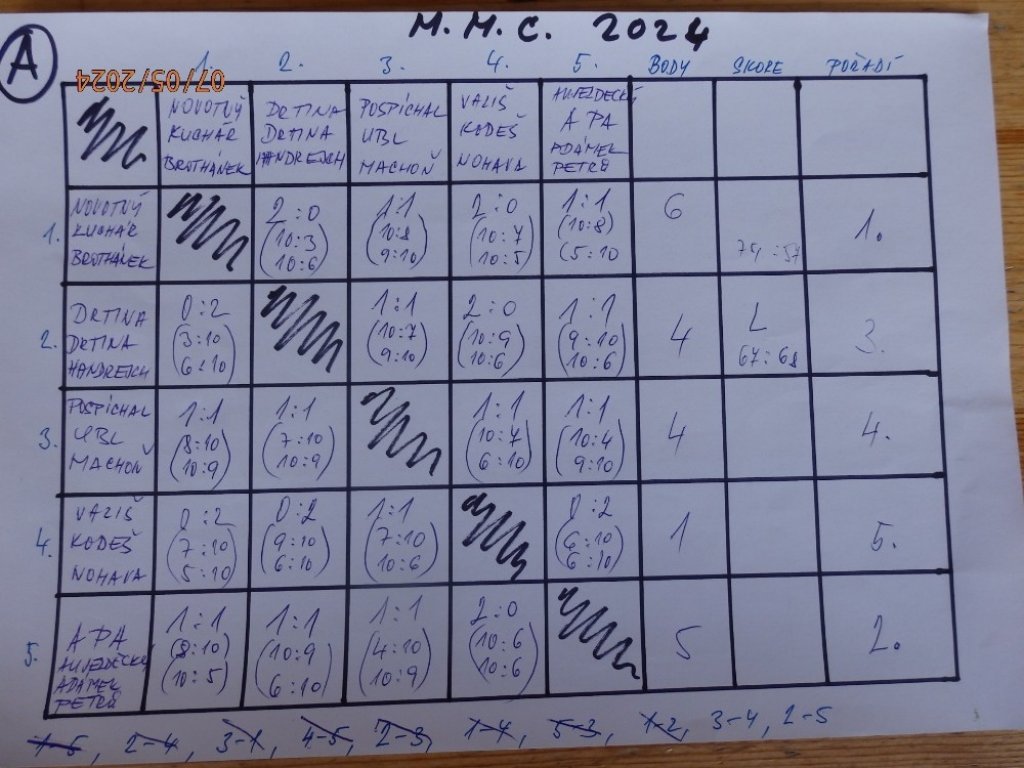 A
M.M.C. 2024
07/05/2024
1. 2. 3. 4. 5. BODY SKORE POŘADÍ
NOVOTNÝ KUCHÁR BROTHÁNEK
DRTINA DRTINA HANDREJCH
POSPÍCHAL UBL MACHOŇ
VALIŠ KODEŠ NOHAVA
A PA ADÁMEK PETRŮ
1. NOVOTNÝ KUCHÁR BROTHÁNEK
2:0 (10:3) 10:6
1:1 (10:8) 9:10
2:0 (10:7) 10:5
1:1 (10:8) (5:10
6
74:57
1.
2. DRTINA DRTINA HANDREJCH
0:2 (3:10) 6:10
1:1 (10:7) 9:10
2:0 (10:9) 10:6
1:1 (9:10) 10:6
4
L 67:68
3.
3. POSPÍCHAL UBL MACHOŇ
1:1 (8:10) 10:9
1:1 (7:10) 10:9
1:1 (10:7) 6:10
1:1 (10:4) 9:10
4
4.
4. VALIŠ KODEŠ NOHAVA
0:2 (7:10) 5:10
0:2 (9:10) 6:10
1:1 (7:10) 10:6
0:2 (6:10) 6:10
1
5.
5. A PA ADÁMEK PETRŮ
1:1 (8:10) 10:5
1:1 (10:9) 6:10
1:1 (4:10) 10:9
2:0 (10:6) 10:6
5
2.
1-5, 2-4, 3-1, 4-5, 2-3, 1-4, 5-3, 1-2, 3-4, 2-5